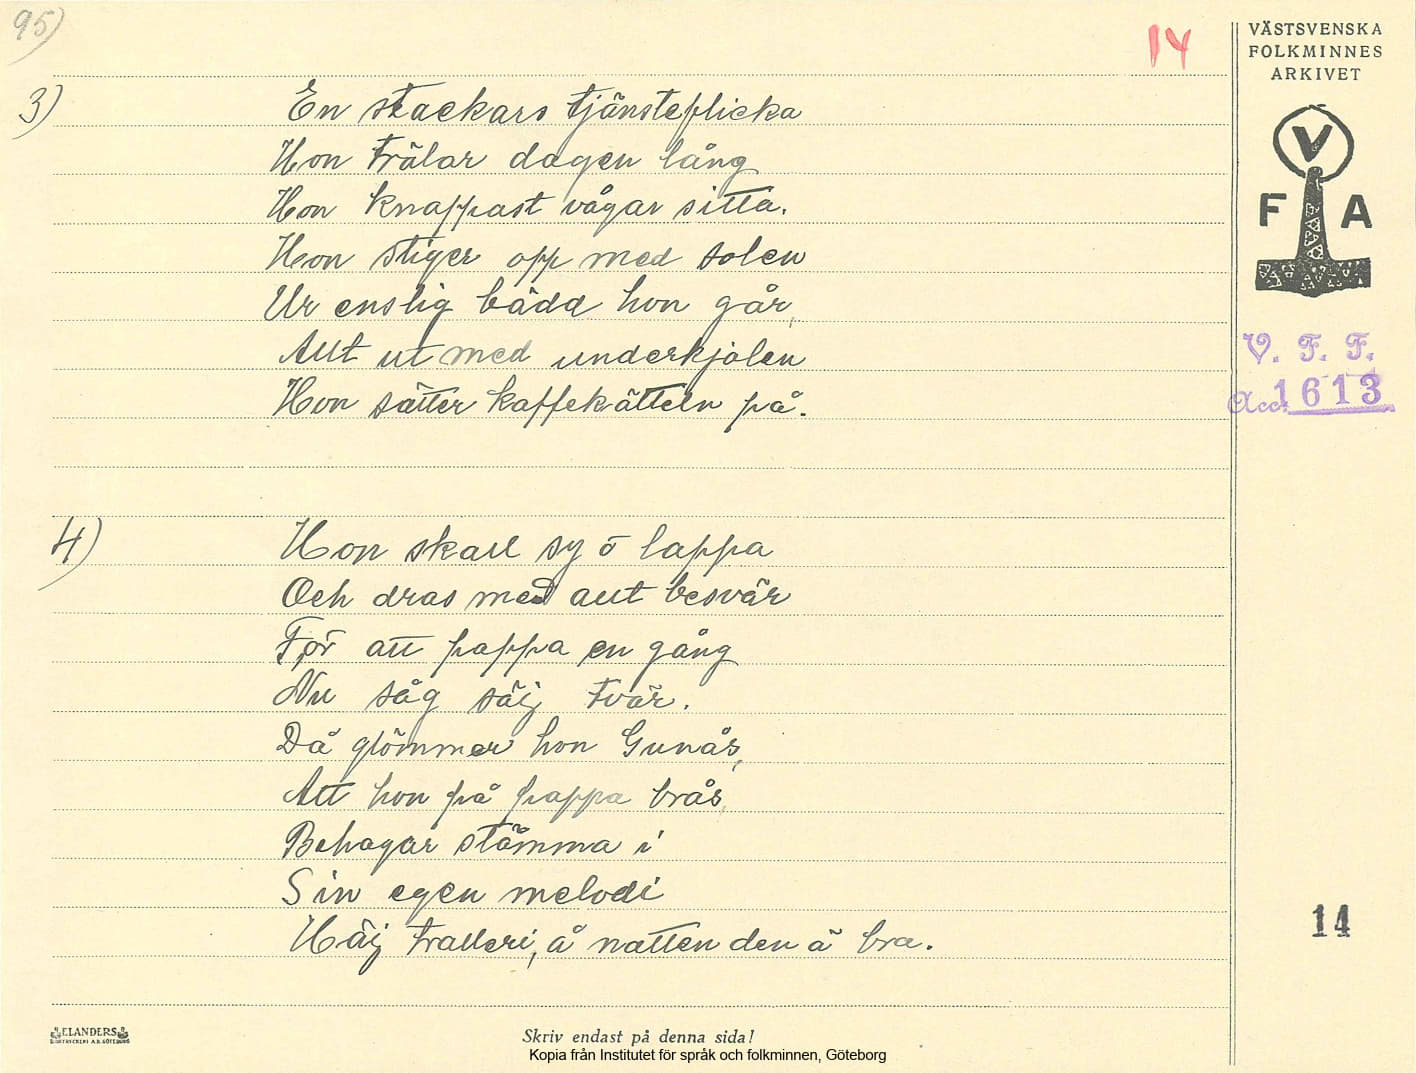 95)
14
VÄSTSVENSKA
FOLKMINNES
ARKIVET
V
F A
V. F. F.
Acc. 1613
3)
En stackars tjänsteflicka
Hon trälar dagen lång
Hon knappast vågar sitta.
Hon stiger opp med solen
Ur enslig bädd hon går,
Allt ut med underkjolen
Hon sätter kaffekätteln på.
4)
Hon skall sy ö lappa
Och dras med allt besvär
För att pappa en gång
Nu såg säj tvär.
Då glömmer hon Gunås,
Att hon på pappa brås,
Behagar stämma i
Sin egen melodi
Häj tralleri, å natten den ä bra.
14
ELANDERS
BOKTRYCKERI A.B. GÖTEBORG
Skriv endast på denna sida!
Kopia från Institutet för språk och folkminnen, Göteborg